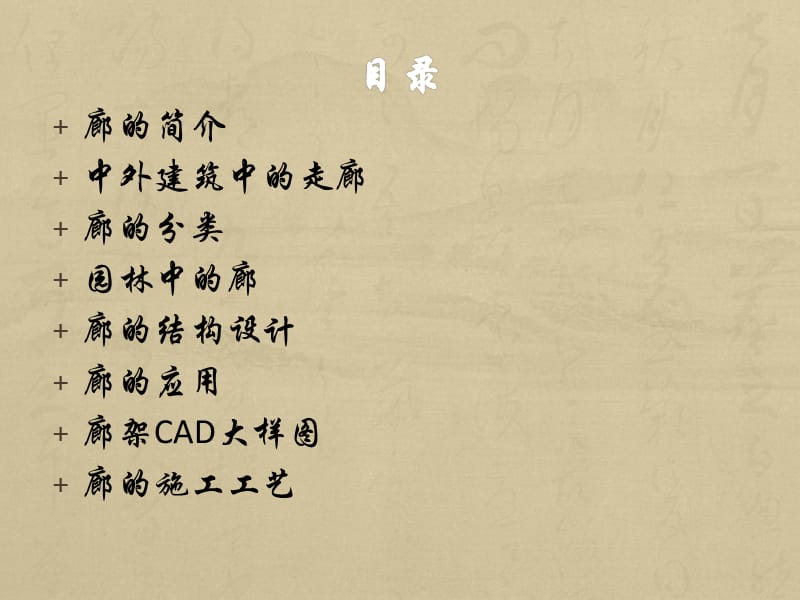 目录
+ 廊的简介
+ 中外建筑中的走廊
+ 廊的分类
+ 园林中的廊
+ 廊的结构设计
+ 廊的应用
+ 廊架CAD大样图
+ 廊的施工工艺